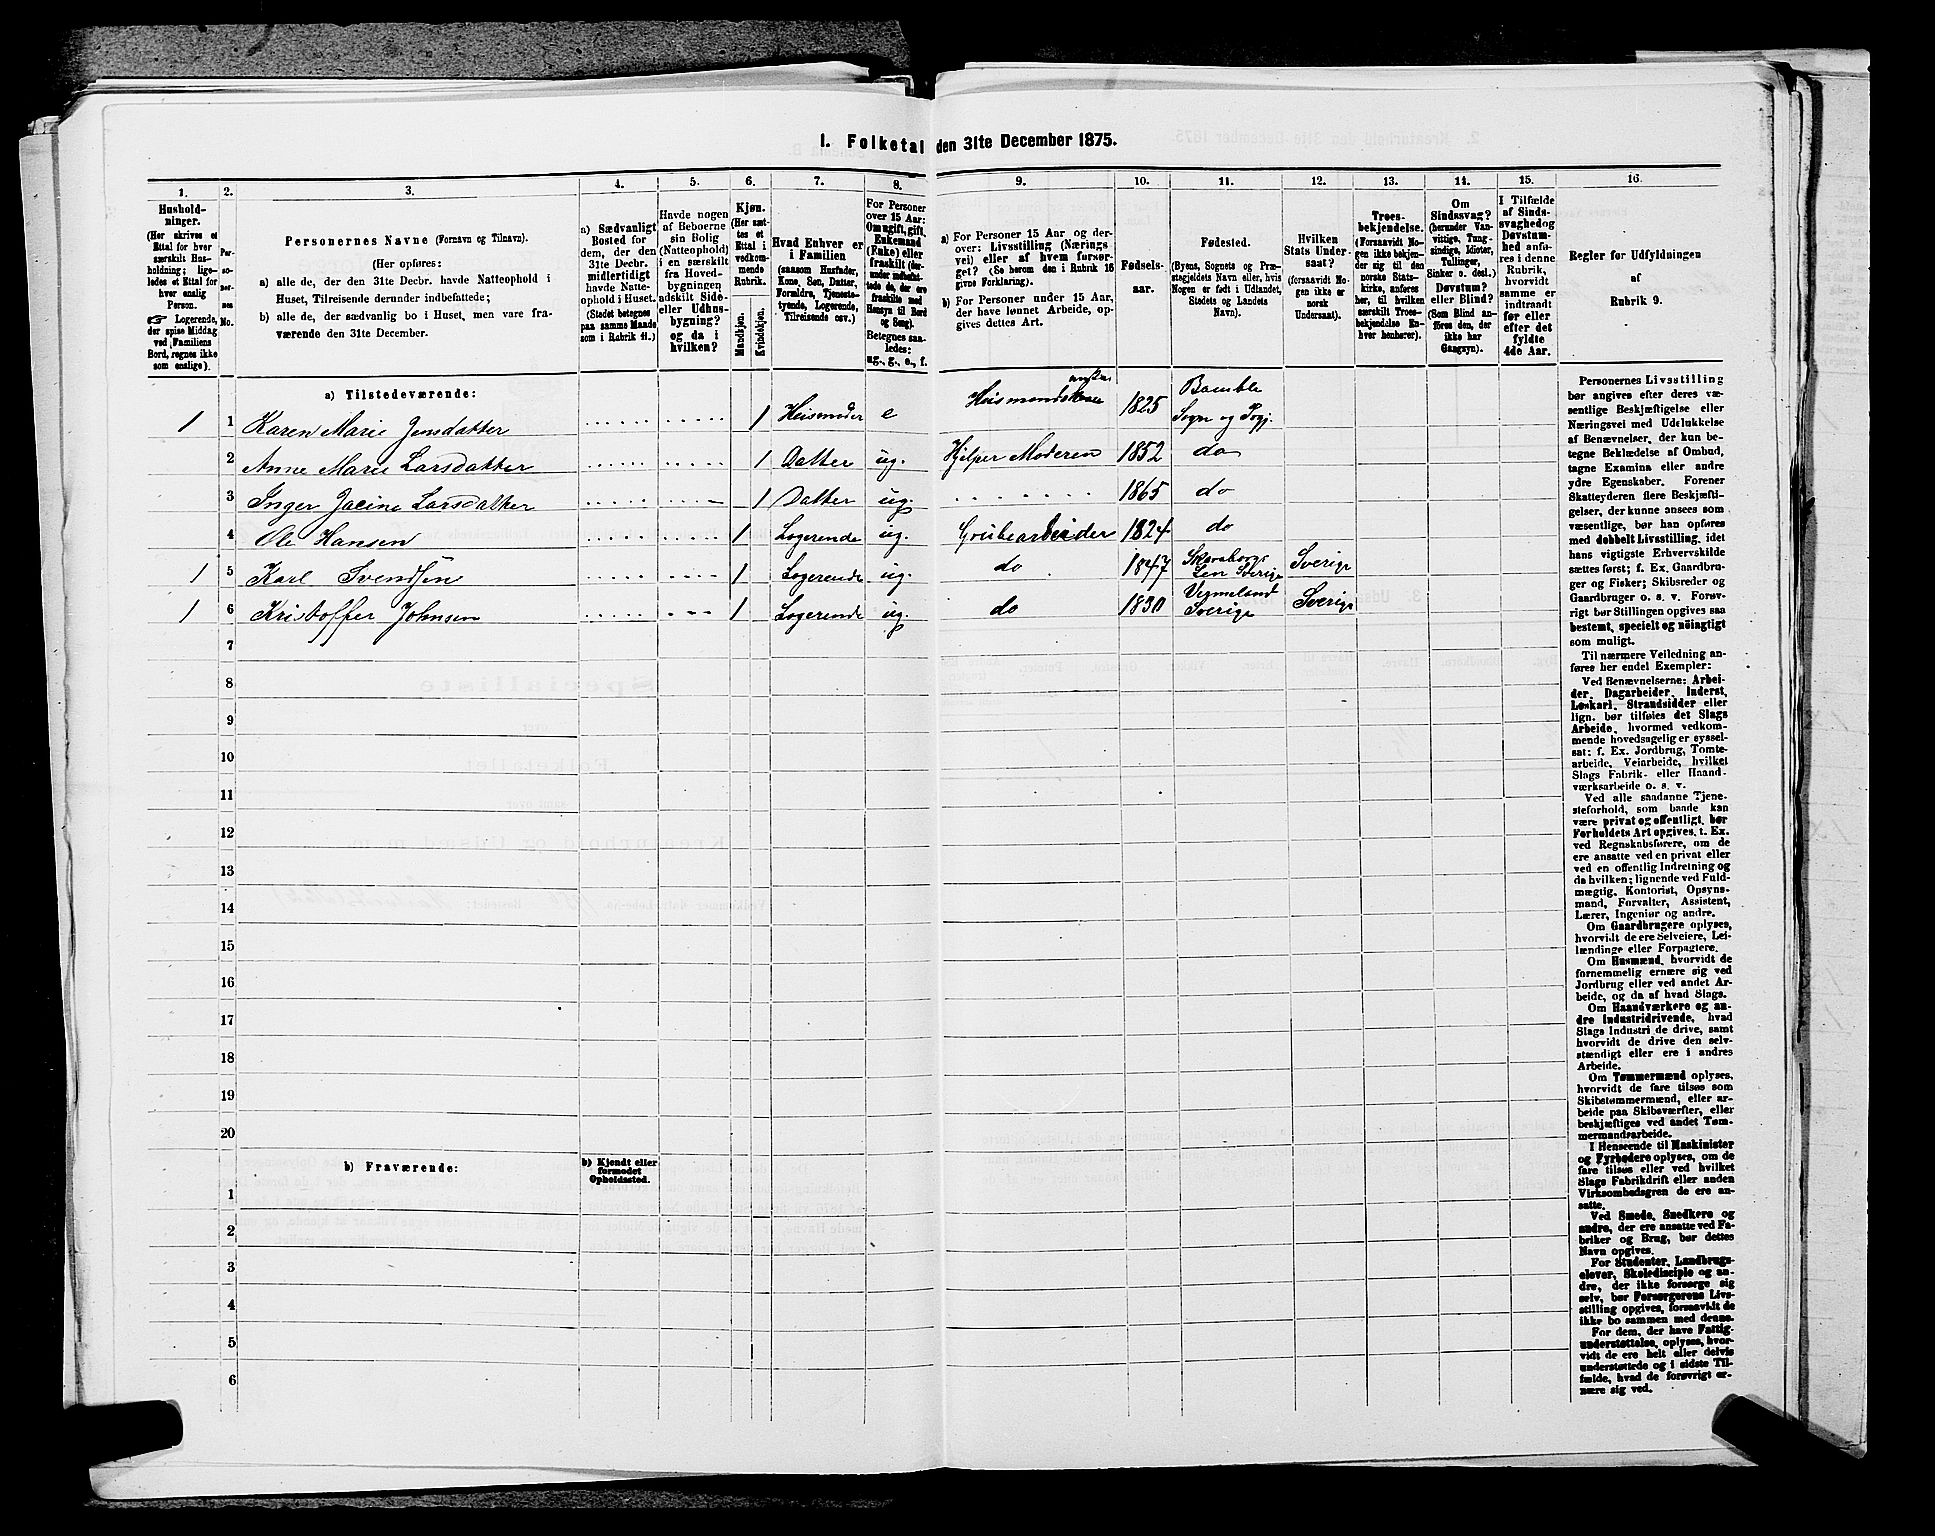 1. Folketal den 31te December 1875.
1. 2. 3. 4. 5. 6. 7. 8. 9. 10. 11. 12. 13. 14. 15. 16.
Hushold-
ninger.
(Her skrives et
Ettal for hver
særskilt Hus-
holdning; lige-
ledes et Ettal for
hver enslig
Person.
☞ Logerende,
der spise Middag
ved Familiens
Bord, regnes ikke
som enslige).
Per-
so-
ner-
nes
No.
Personernes Navne (Fornavn og Tilnavn).
(Her opføres:
a) alle de, der den 31te Decbr. havde Natteophold i
Huset, Tilreisende derunder indbefattede;
b) alle de, der sædvanlig bo i Huset, men vare fra-
værende den 31te December.
a) Sædvanligt
Bosted for
dem, der den
31te Decbr.
midlertidigt
havde Natte-
ophold i Huset.
(Stedet betegnes
paa samme Maade
som i Rubrik 11.)
Havde nogen
af Beboerne
sin Bolig
(Natteophold)
i en særskilt
fra Hoved-
bygningen
adskilt Side-
eller Udhus-
bygning?
og da i
hvilken?
Kjøn.
(Her sæt-
tes et
Ettal i
vedkom-
mende
Rubrik.
Mandkjøn.
Kvindekjøn.
Hvad Enhver er
i Familien
(saasom Husfader,
Kone, Søn, Datter,
Forældre, Tjeneste-
tyende, Logerende,
Tilreisende osv.)
For Personer
over 15 Aar:
Om ugift, gift,
Enkemand
(Enke) eller
fraskilt (her-
under indbefat-
tede de, der ere
fraskilte med
Hensyn til Bord
og Seng).
Betegnes saa-
ledes:
ug., g., e., f.
a) For Personer 15 Aar og der-
over: Livsstilling (Nærings-
vei) eller af hvem forsør-
get? (Se herom den i Rubrik 16
givne Forklaring).
b) For Personer under 15 Aar,
der have lønnet Arbeide, op-
gives dettes Art.
Fødsels-
aar.
Fødested.
(Byens, Sognets og Præ-
stegjeldets Navn eller, hvis
Nogen er født i Udlandet,
Stedets og Landets
Navn).
Hvilken
Stats Under-
saat?
(forsaavidt No-
gen ikke er
norsk
Undersaat).
Troes-
bekjendelse.
(Forsaavidt No-
gen ikke bekjen-
der sig til den
norske Stats-
kirke, anføres
her, til hvilken
særskilt Troes-
bekjendelse En-
hver henhører).
Om
Sindssvag?
(herunder Van-
vittige, Tung-
sindige, Idioter,
Tullinger,
Sinker o. desl.)
Døvstum?
eller Blind?
(Som Blind an-
føres den, der
ikke har
Gangsyn).
I Tilfælde
af Sinds-
svaghed og
Døvstum-
hed anfø-
res i denne
Rubrik,
hvorvidt
samme er
indtraadt
før eller
efter det
fyldte
4de Aar.
Regler for Udfyldningen
af
Rubrik 9.
a) Tilstedeværende:
1 1 Karen Marie Jensdatter 1 Husmoder e Husmandsenke 1825 Bamble
Sogn og Prgj.
2 Anne Marie Larsdatter 1 Datter ug. Hjelper Moderen 1852 do
3 Inger Jacine Larsdatter 1 Datter ug. 1865 do
4 Ole Hansen 1 Logerende ug. Grubearbeider 1824 do
1 5 Karl Svendsen 1 Logerende ug. do 1847 Skaraborgs
Len Sverige Sverige
1 6 Kristoffer Johnsen 1 Logerende ug. do 1830 Vermeland
Sverige Sverige
7
8
9
10
11
12
13
14
15
16
17
18
19
20
b) Fraværende:
b) Kjendt eller
formodet
Opholdssted.
1
2
3
4
5
6
Personernes Livsstilling
bør angives efter deres væ-
sentlige Beskjæftigelse eller
Næringsvei med Udelukkelse
af Benævnelser, der kun be-
tegne Beklædelse af Ombud,
tagne Examina eller andre
ydre Egenskaber. Forener
Skatteyderen flere Beskjæfti-
gelser, der kunne ansees som
væsentlige, bør han opføres
med dobbelt Livsstilling, idet
hans vigtigste Erhvervskilde
sættes først; f. Ex. Gaardbru-
ger og Fisker; Skibsreder og
Gaardbruger o. s. v. Forøv-
rigt bør Stillingen opgives saa
bestemt, specielt og nøiagtigt
som muligt.
Til nærmere Veiledning an-
føres her endel Exempler:
Ved Benævnelserne: Arbei-
der, Dagarbeider, Inderst,
Løskarl, Strandsidder eller
lign. bør tilføies det Slags
Arbeide, hvormed vedkom-
mende hovedsagelig er syssel-
sat: f. Ex. Jordbrug, Tomte-
arbeide, Veiarbeide, hvilket
Slags Fabrik- eller Haand-
værksarbeide o. s. v.
Ved alle saadanne Tjene-
steforhold, som baade kan
være privat og offentligt, bør
Forholdets Art opgives, t. Ex.
ved Regnskabsførere, om de
ere ansatte ved en privat eller
ved en offentlig Indretning og
da hvilken; lignende ved Fuld-
mægtig, Kontorist, Opsyns-
mand, Forvalter, Assistent,
Lærer, Ingeniør og andre.
Om Gaardbrugere oplyses,
hvorvidt de ere Selveiere, Lei-
lændinge eller Forpagtere.
Om Husmænd, hvorvidt de
fornemmelig ernære sig ved
Jordbrug eller ved andet Ar-
beide, og da af hvad Slags.
Om Haandværkere og an-
dre Industridrivende, hvad
Slags Industri de drive, samt
hvorvidt de drive den selv-
stændigt eller ere i andres
Arbeide.
Om Tømmermænd oplyses,
hvorvidt de fare tilsøs som
Skibstømmermænd, eller ar-
beide paa Skibsværfter, eller
beskjæftiges ved andet Tøm-
mermandsarbeide.
I Henseende til Maskinister
og Fyrbødere oplyses, om de
fare tilsøs eller ved hvilket
Slags Fabrikdrift eller anden
Virksomhedsgren de ere an-
satte.
Ved Smede, Snedkere og
andre, der ere ansatte ved Fa-
briker og Brug, bør dettes
Navn opgives.
For Studenter, Landbrugs-
elever, Skoledisciple og an-
dre, der ikke forsørge sig
selv, bør Forsørgerens Livs-
stilling opgives, forsaavidt de
ikke bo sammen med denne.
For dem, der have Fattig-
understøttelse, oplyses, hvor-
vidt de ere helt eller delvis
understøttede og i sidste Til-
fælde, hvad de forøvrigt er-
nære sig ved.